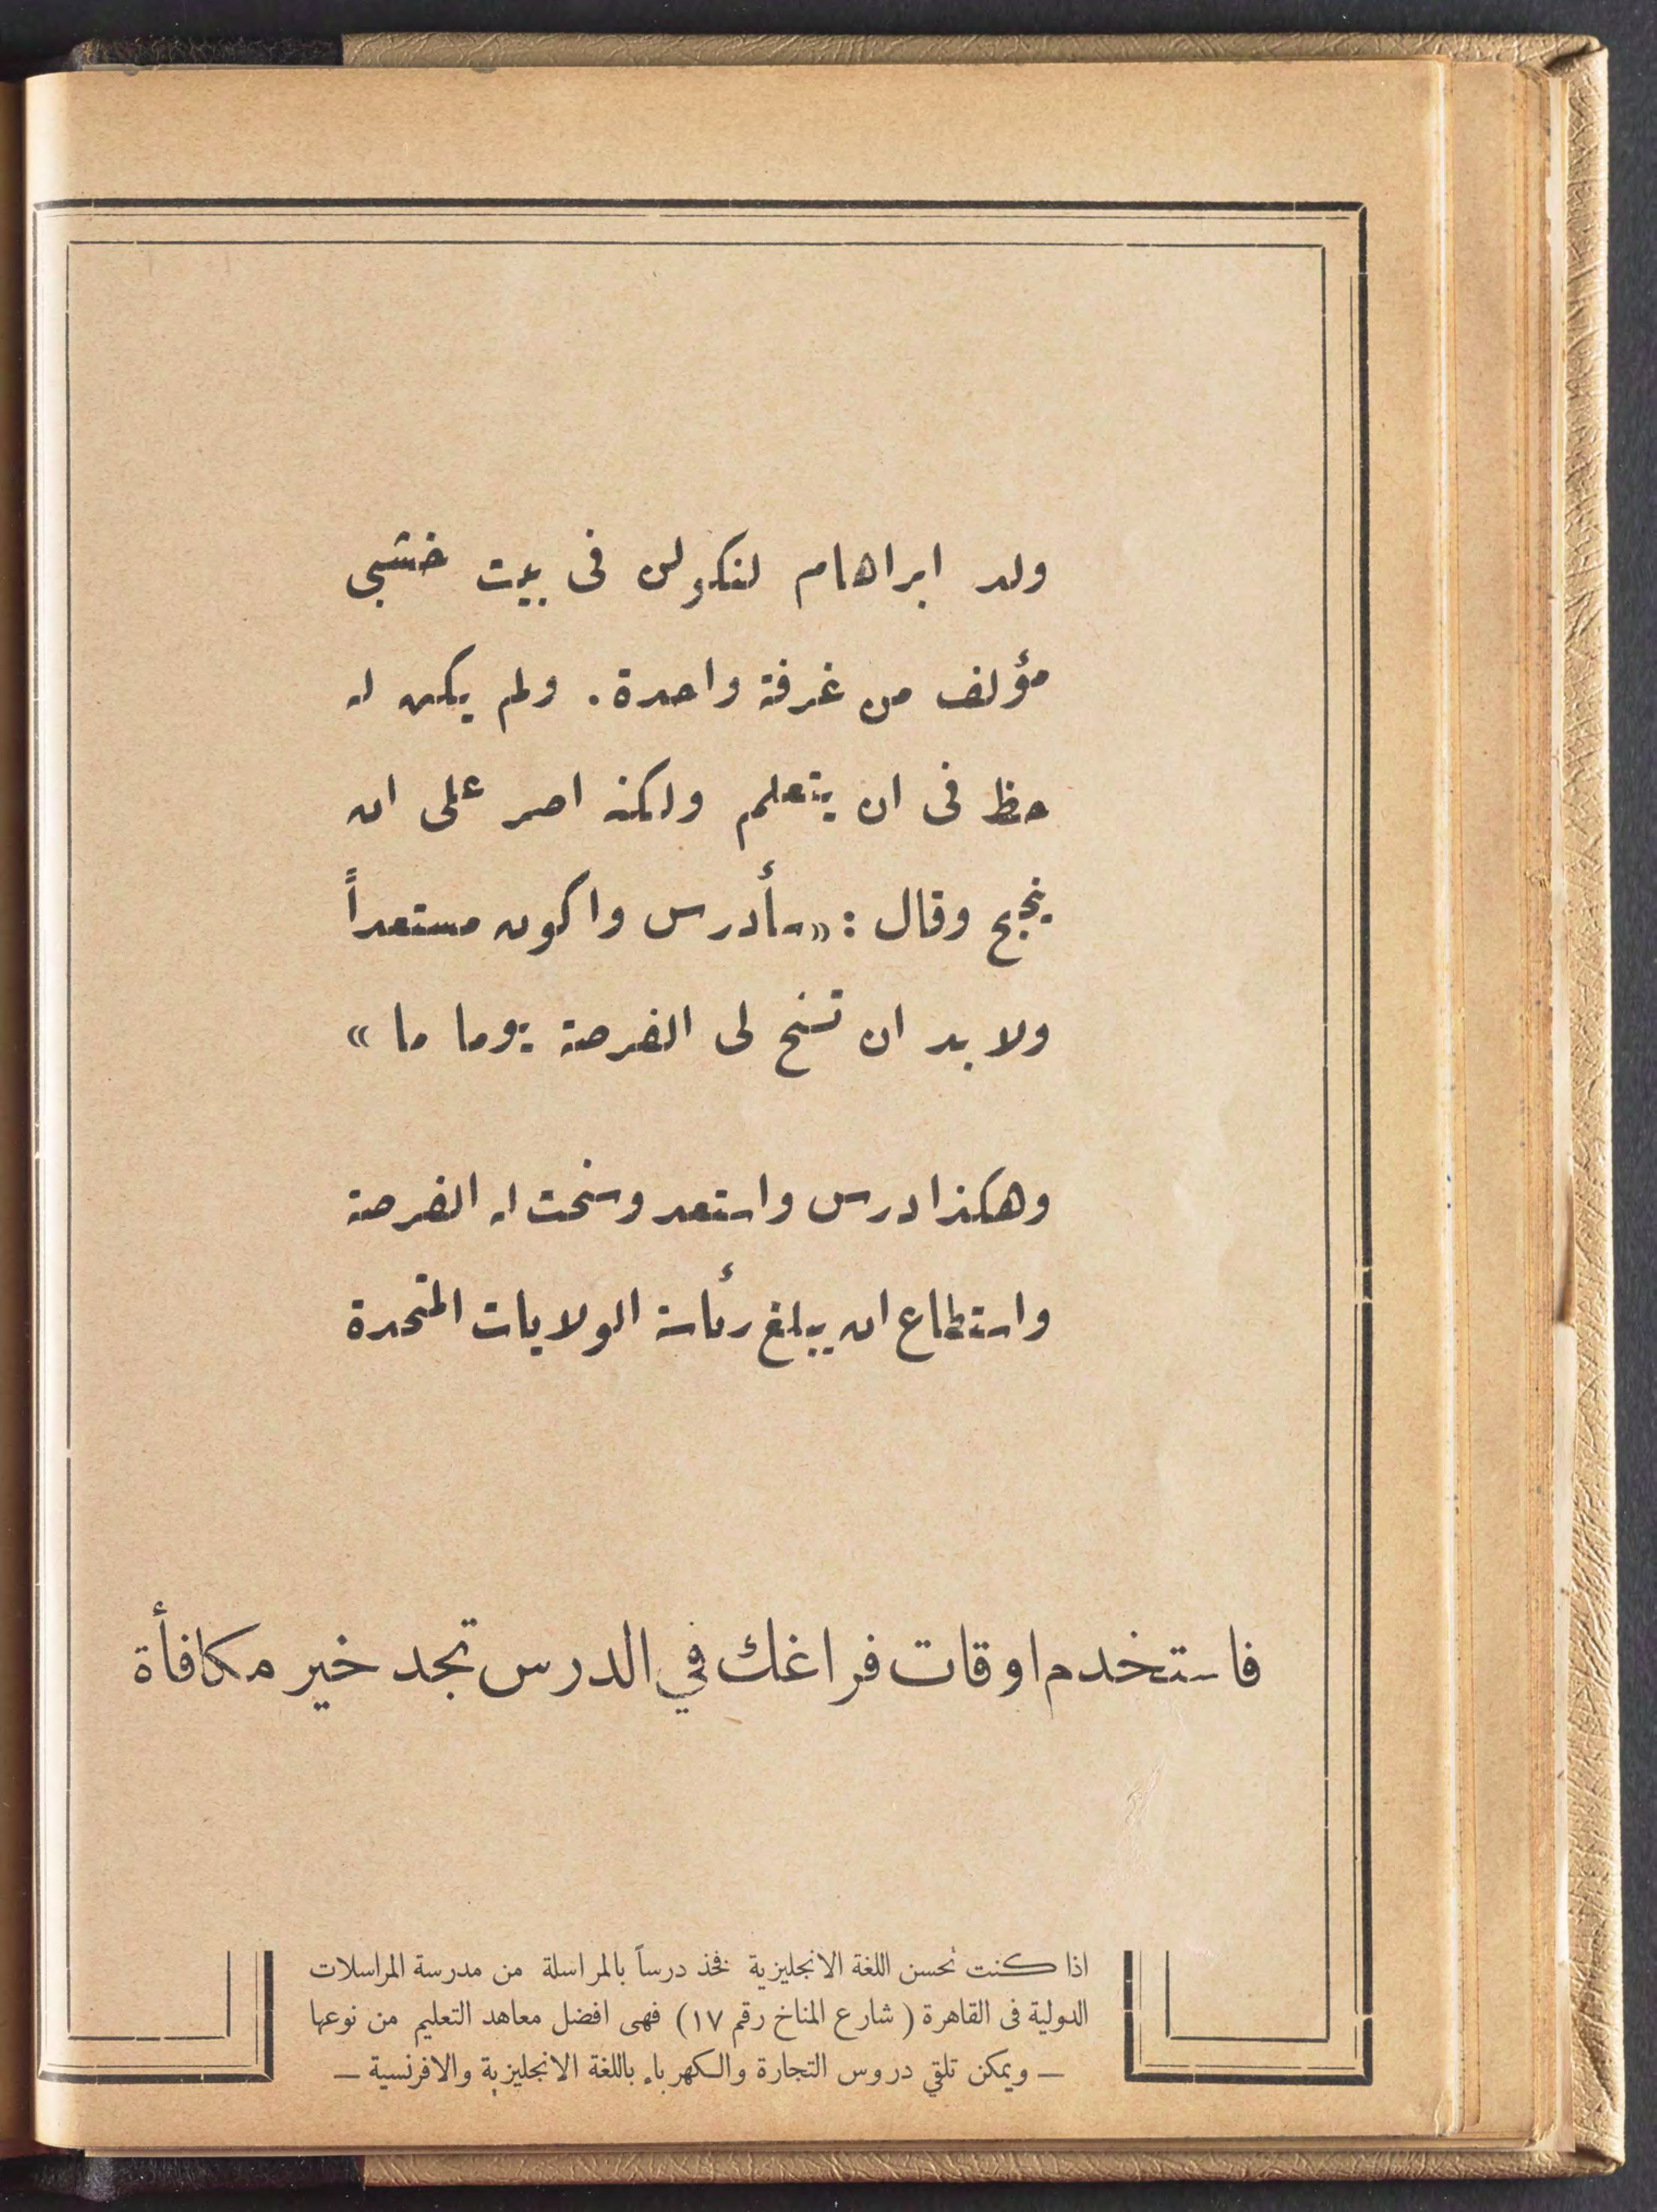 ولد ابراهام لنكولن فى بيت خشبى
مؤلف من غرفة واحدة. ولم يكن له
حظ فى ان يتعلم ولكنه اصر على ان
ينجح وقال : «سأدرس واكون مستعداً
ولا بد ان تسنح لى الفرصة يوما ما »
وهكذا درس واستعد وسنحت له الفرصة
واستطاع ان يبلغ رئاسة الولايات المتحدة
فاستخدم اوقات فراغك في الدرس تجد خير مكافأة
اذا كنت تحسن اللغة الانجليزية فخذ درساً بالمراسلة من مدرسة المراسلات
الدولية فى القاهرة ( شارع المناخ رقم ١٧ ) فهى افضل معاهد التعليم من نوعها
— ويمكن تلقي دروس التجارة والكهرباء باللغة الانجليزية والافرنسية —